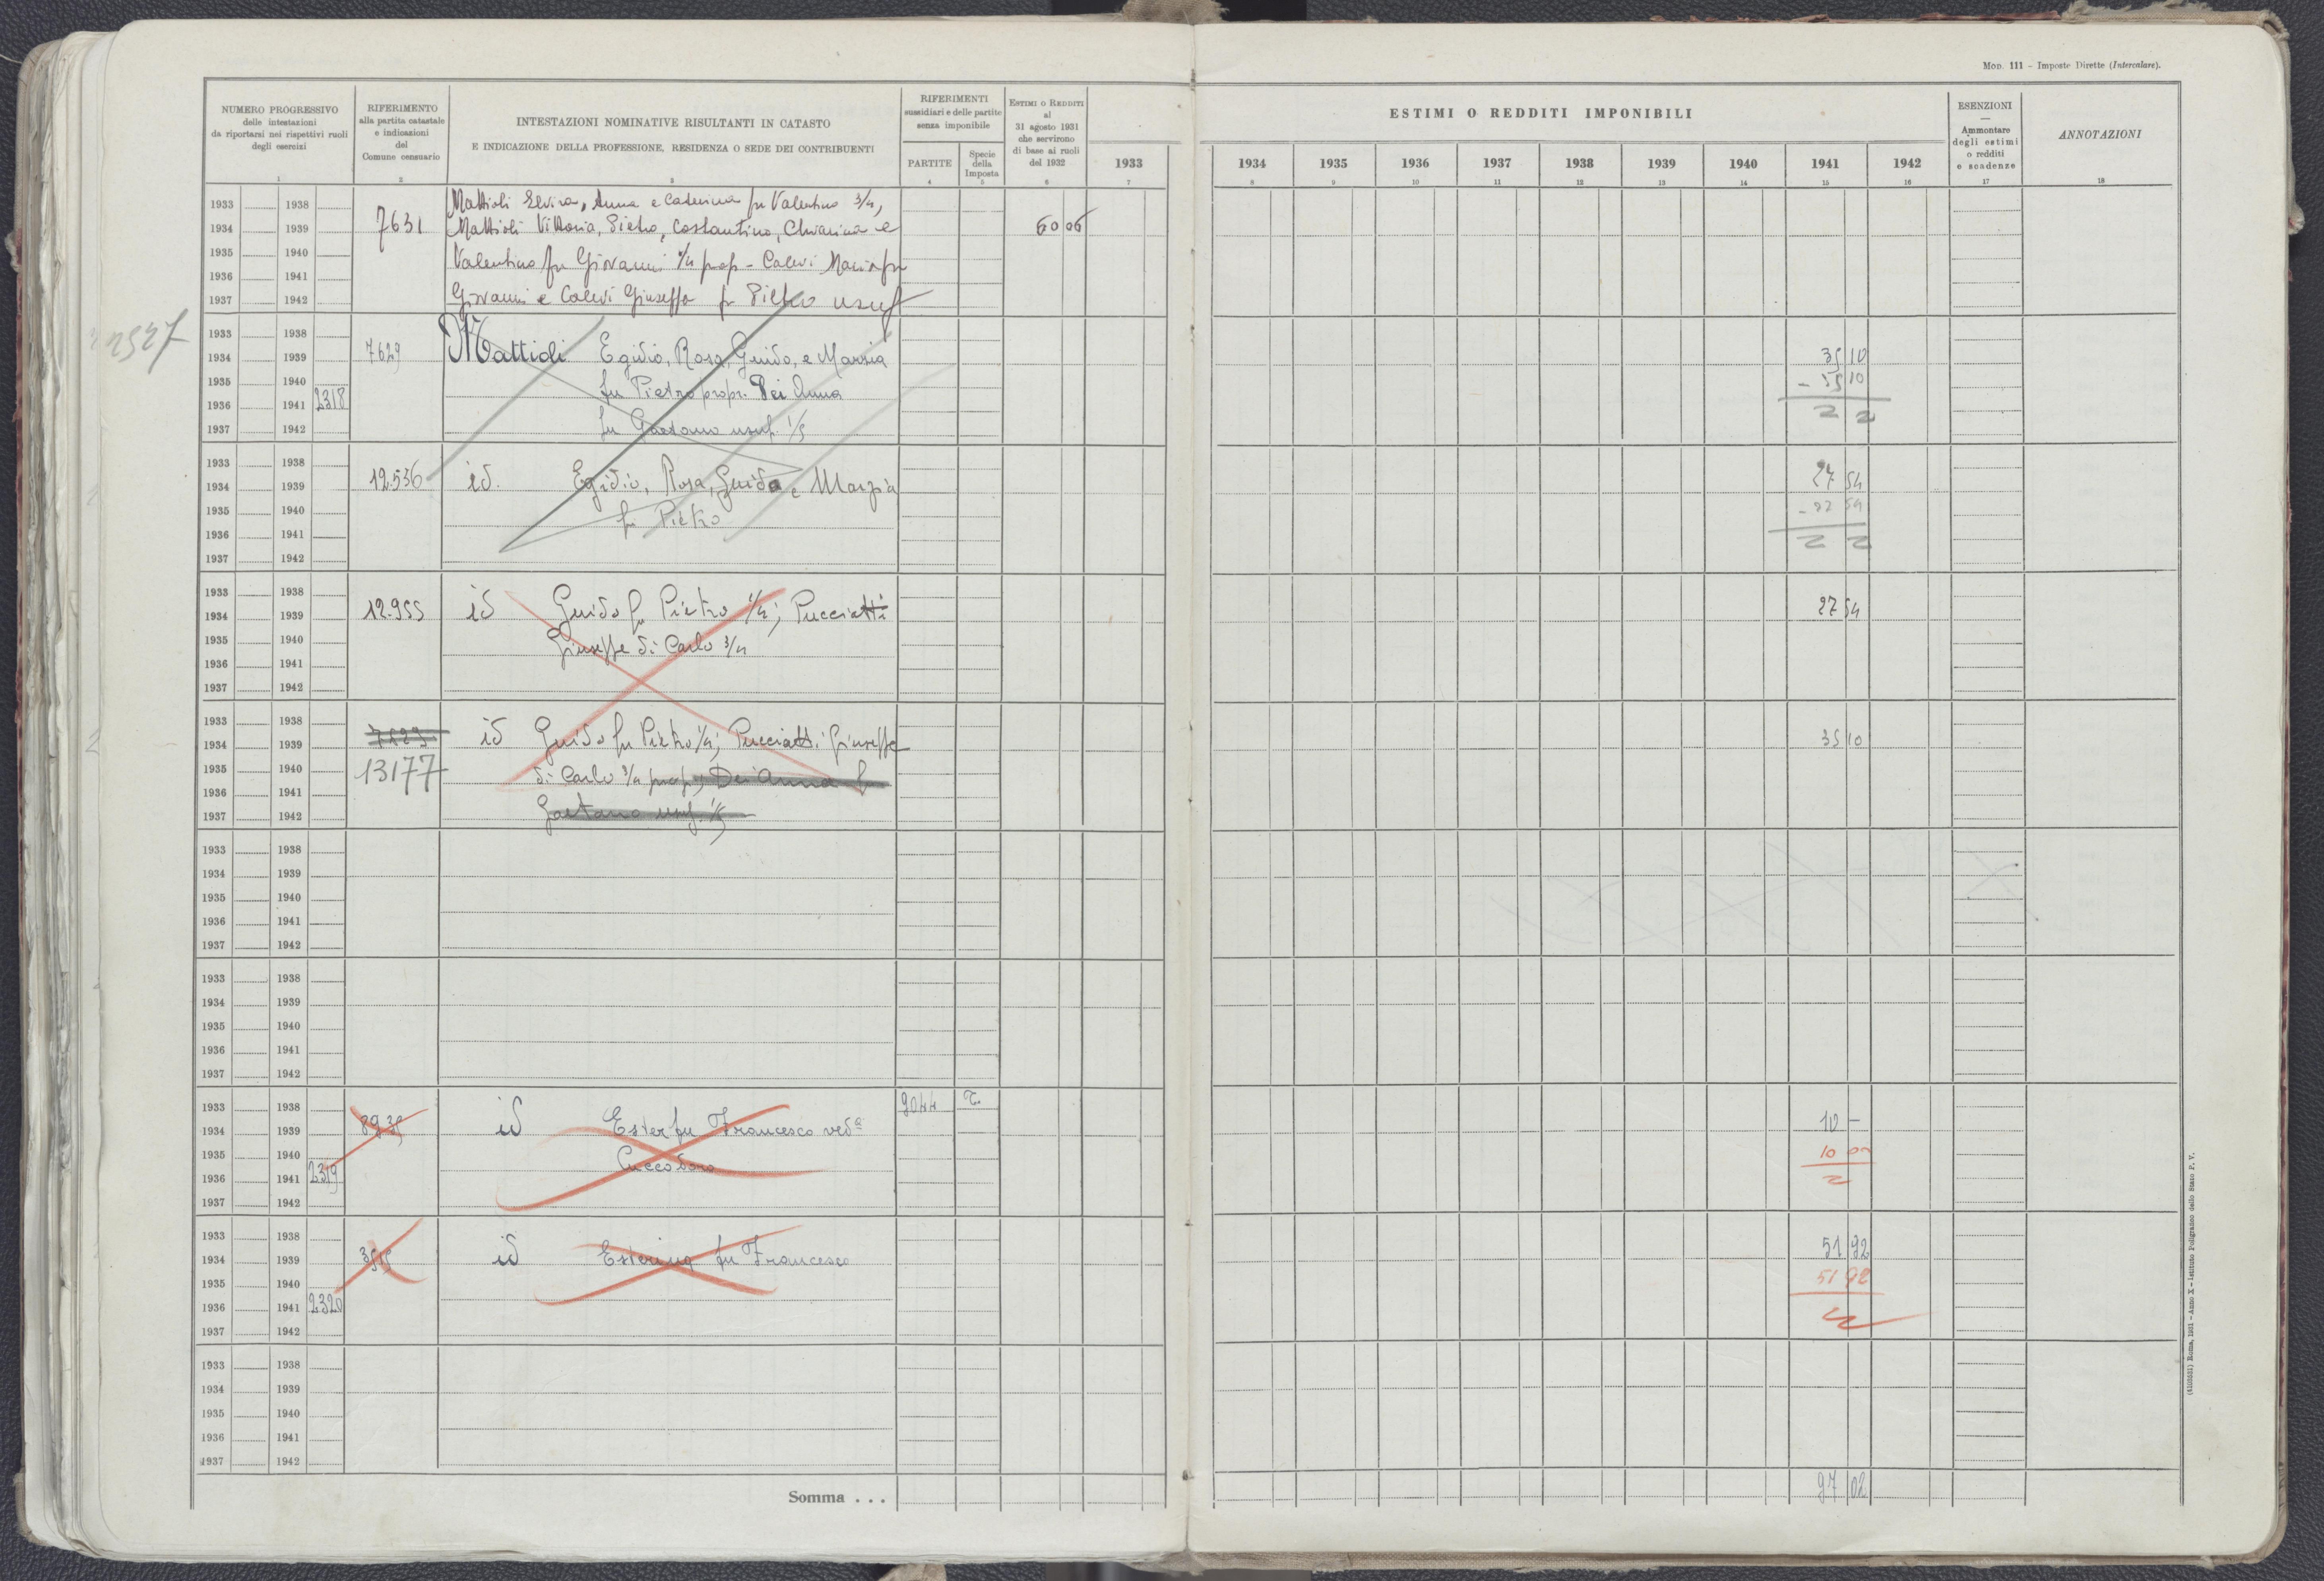 Mod. 111 - Imposte Dirette (Intercalare).
NUMERO PROGRESSIVO
delle intestazioni
da riportarsi nei rispettivi ruoli
degli esercizi
1
RIFERIMENTO
alla partita catastale
e indicazioni
del
Comune censuario
2
INTESTAZIONI NOMINATIVE RISULTANTI IN CATASTO
E INDICAZIONE DELLA PROFESSIONE, RESIDENZA O SEDE DEI CONTRIBUENTI
3
RIFERIMENTI
sussidiari e delle partite
senza imponibile
PARTITE
4
Specie
della
Imposta
5
Estimi o Redditi
al
31 agosto 1931
che servirono
di base ai ruoli
del 1932
6
1933
7
ESTIMI O REDDITI IMPONIBILI
1934 1935 1936 1937 1938 1939 1940 1941 1942
8 9 10 11 12 13 14 15 16
ESENZIONI
—
Ammontare
degli estimi
o redditi
e scadenze
17
ANNOTAZIONI
18
1933 1938
1934 1939
1935 1940
1936 1941
1937 1942
7631
Mattioli Elvira, Anna e Caterina fu Valentino 3/4,
Mattioli Vittoria, Pietro, Costantino, Chiarina e
Valentino fu Giovanni 1/4 prop - Calevi Maria fu
Giovanni e Calevi Giuseppa fu Pietro usuf
60 06
1933 1938
1934 1939
1935 1940
1936 1941 2318
1937 1942
7629
Mattioli Egidio, Rosa, Guido, e Marzia
fu Pietro propr. Dei Anna
fu Gaetano usuf. 1/5
35 10
- 35 10
1933 1938
1934 1939
1935 1940
1936 1941
1937 1942
12536
id. Egidio, Rosa, Guido e Marzia
fu Pietro
27 54
1933 1938
1934 1939
1935 1940
1936 1941
1937 1942
12.955
id Guido fu Pietro 1/4; Pucciatti
Giuseppe di Carlo 3/4
27 54
1933 1938
1934 1939
1935 1940
1936 1941
1937 1942
7629
13177
id Guido fu Pietro 1/4; Pucciatti Giuseppe
di Carlo 3/4 prop, Dei Anna fu
Gaetano usuf. 1/5
35 10
1933 1938
1934 1939
1935 1940
1936 1941
1937 1942
1933 1938
1934 1939
1935 1940
1936 1941
1937 1942
1933 1938
1934 1939
1935 1940
1936 1941 2319
1937 1942
id Ester fu Francesco ved.a
Cuccodoro
9044
10 -
10 00
1933 1938
1934 1939
1935 1940
1936 1941 2320
1937 1942
id Esterina fu Francesco
51 92
51 92
1933 1938
1934 1939
1935 1940
1936 1941
1937 1942
Somma . . .
97 02
(4103551) Roma, 1931 - Anno X - Istituto Poligrafico dello Stato P. V.